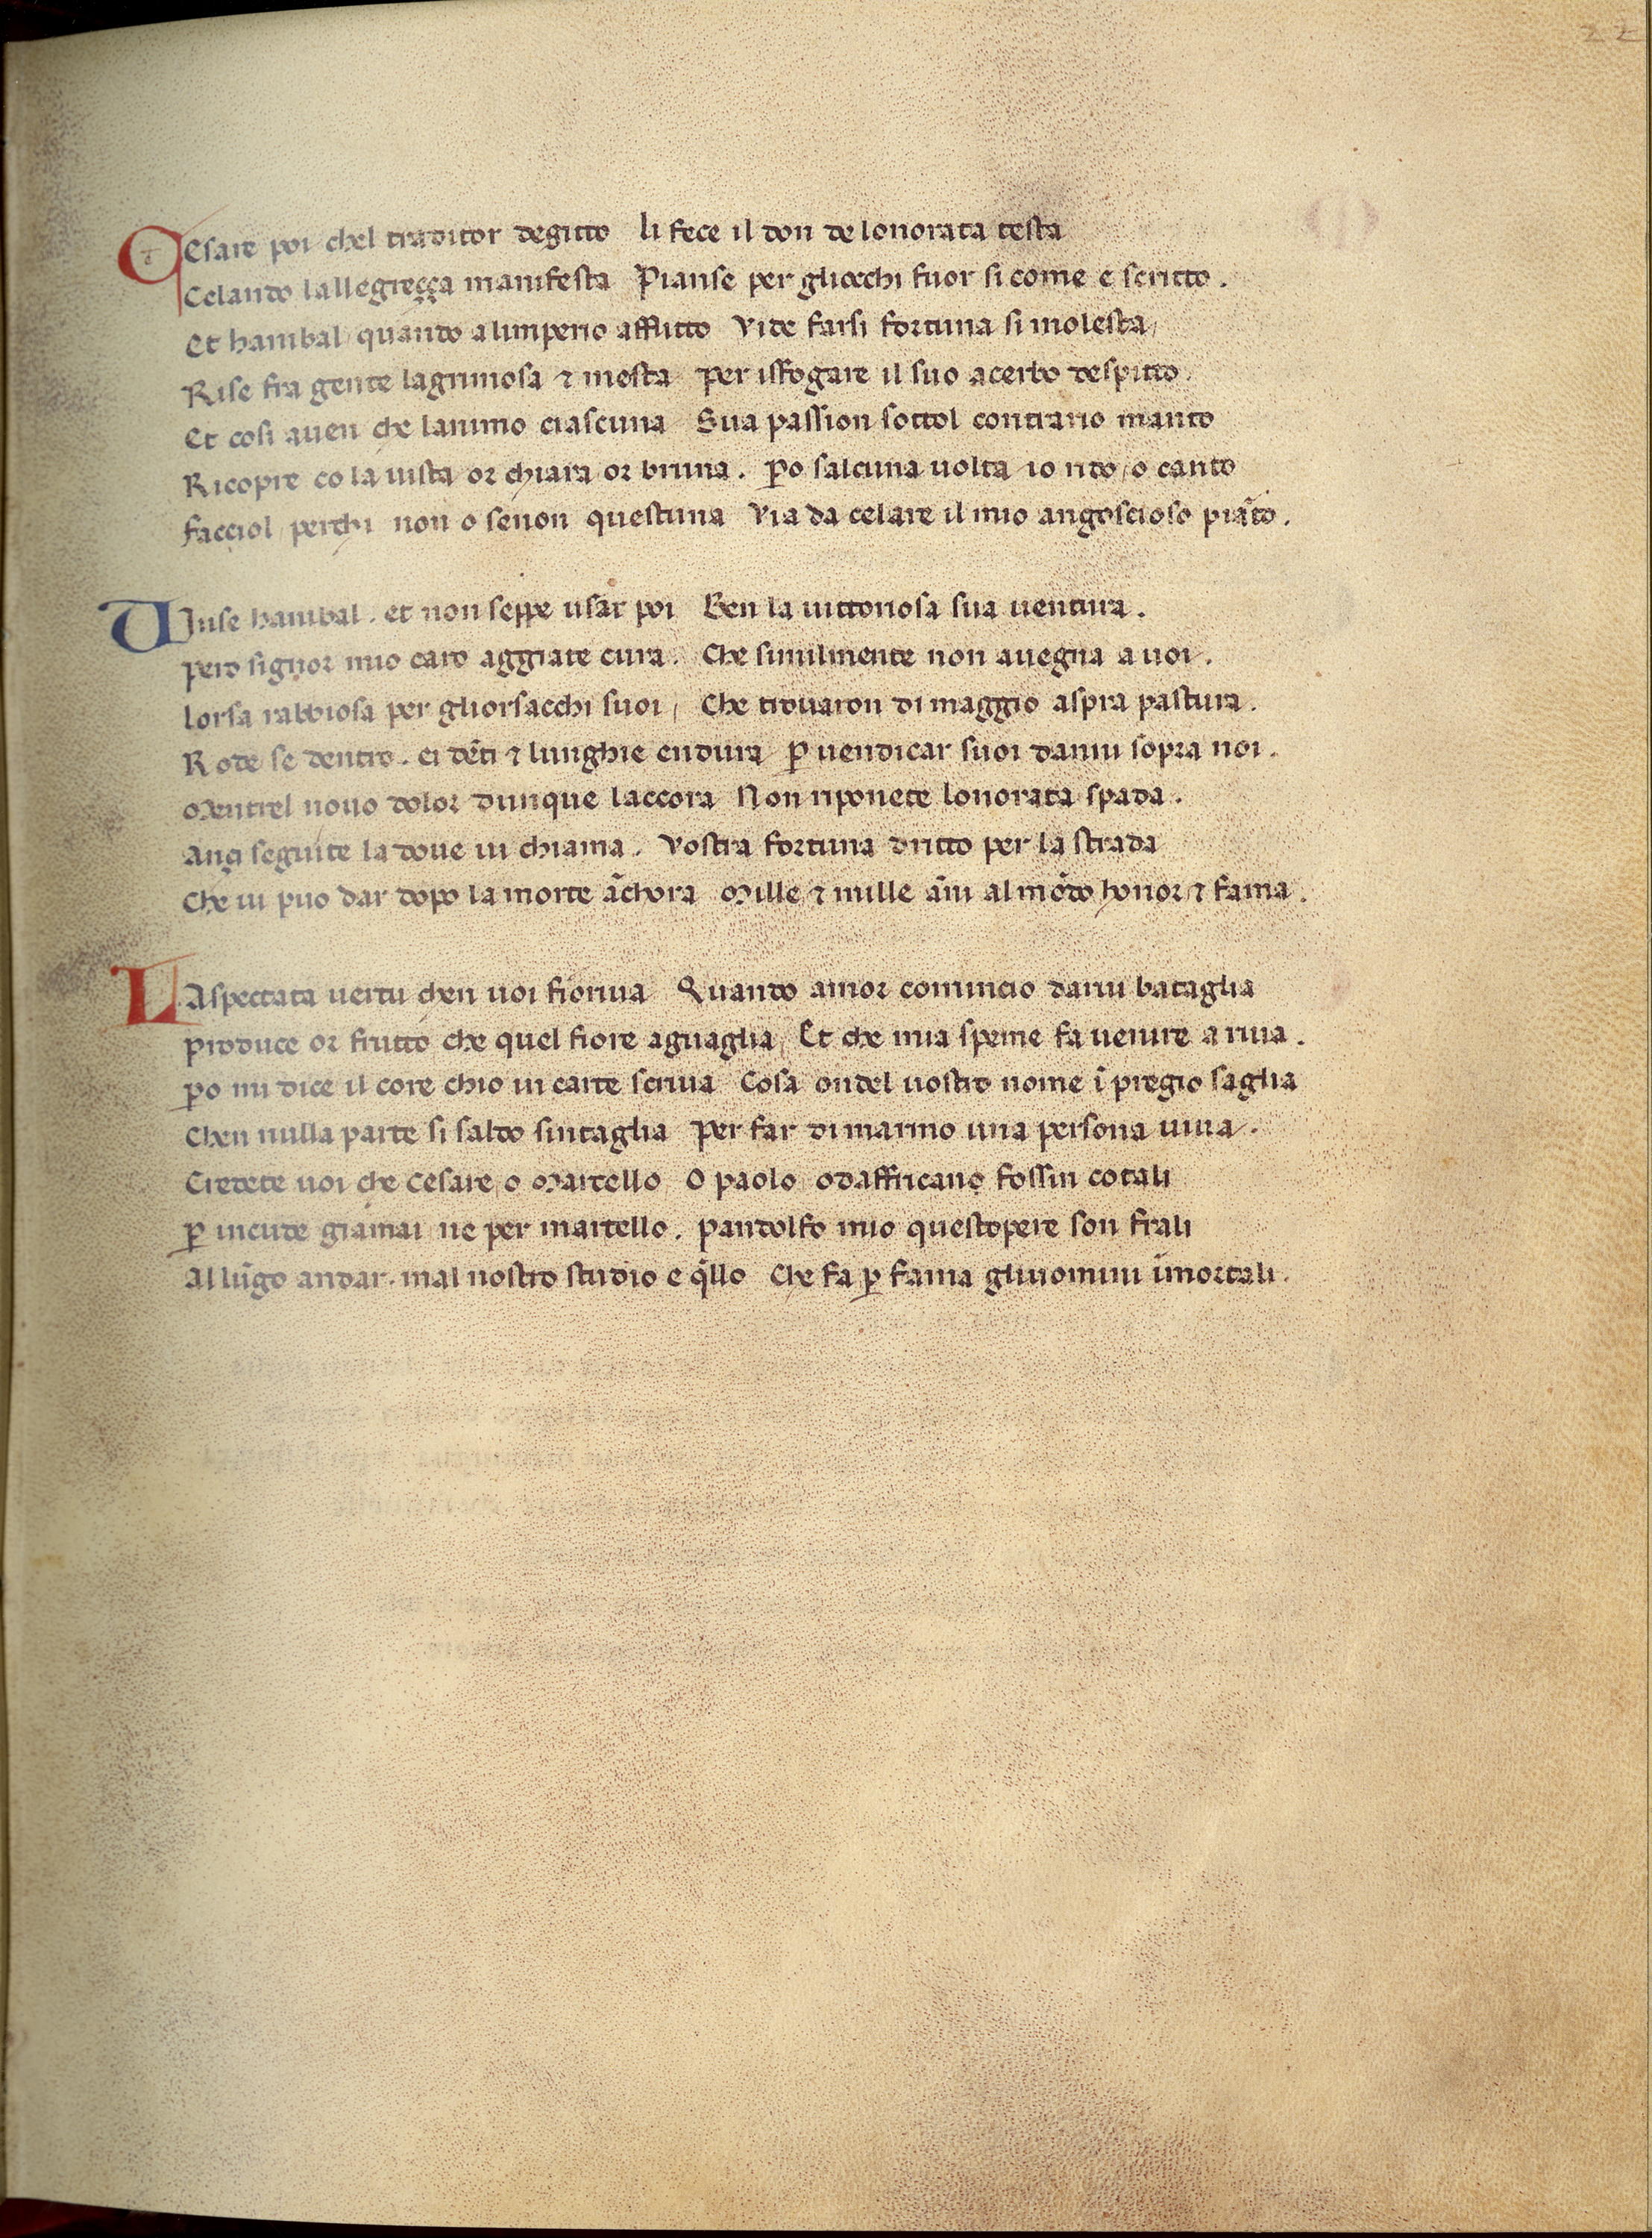 22
CEsare poi chel traditor degitto li fece il don de lonorata testa
Celando lallegreçça manifesta Pianse per gliocchi fuor si come e scritto.
Et hanibal quando alimperio afflitto Vide farsi fortuna si molesta
Rise fra gente lagrimosa ⁊ mesta per isfogare il suo acerbo despitto
Et cosi auen che lanimo ciascuna Sua passion sottol contrario manto
Ricopre co la uista or chiara or bruna. ꝑo salcuna uolta io rido o canto
facciol perchi non o senon questuna Via da celare il mio angoscioso piãto.
VInse hanibal. et non seppe usar poi Ben la uittoriosa sua uentura.
pero signor mio caro aggiate cura. Che similmente non auegna a uoi.
lorsa rabbiosa per gliorsacchi suoi, Che trouaron di maggio aspra pastura.
Rode se dentro. ei dẽti ⁊ lunghie endura ꝑ uendicar suoi danni sopra noi.
Mentrel nouo dolor dunque laccora Non riponete lonorata spada.
Ançi seguite la doue ui chiama. Vostra fortuna dritto per la strada
Che ui puo dar dopo la morte ãchora Mille ⁊ mille ãni al mõdo honor ⁊ fama.
LAspectata uertu chen uoi fioriua Quando amor comincio darui bataglia
produce or frutto che quel fiore aguaglia, Et che mia speme fa uenire a riua.
ꝑo mi dice il core chio in carte scriua Cosa ondel uostro nome ĩ pregio saglia
Chen nulla parte si saldo sintaglia per far di marmo una persona uiua.
Credete uoi che cesare o Martello O paolo odaffricano fossin cotali
ꝑ incude giamai ne per martello. pandolfo mio questopere son frali
Al lũgo andar. mal nostro studio e q̃llo Che fa ꝑ fama gliuomini ĩmortali.